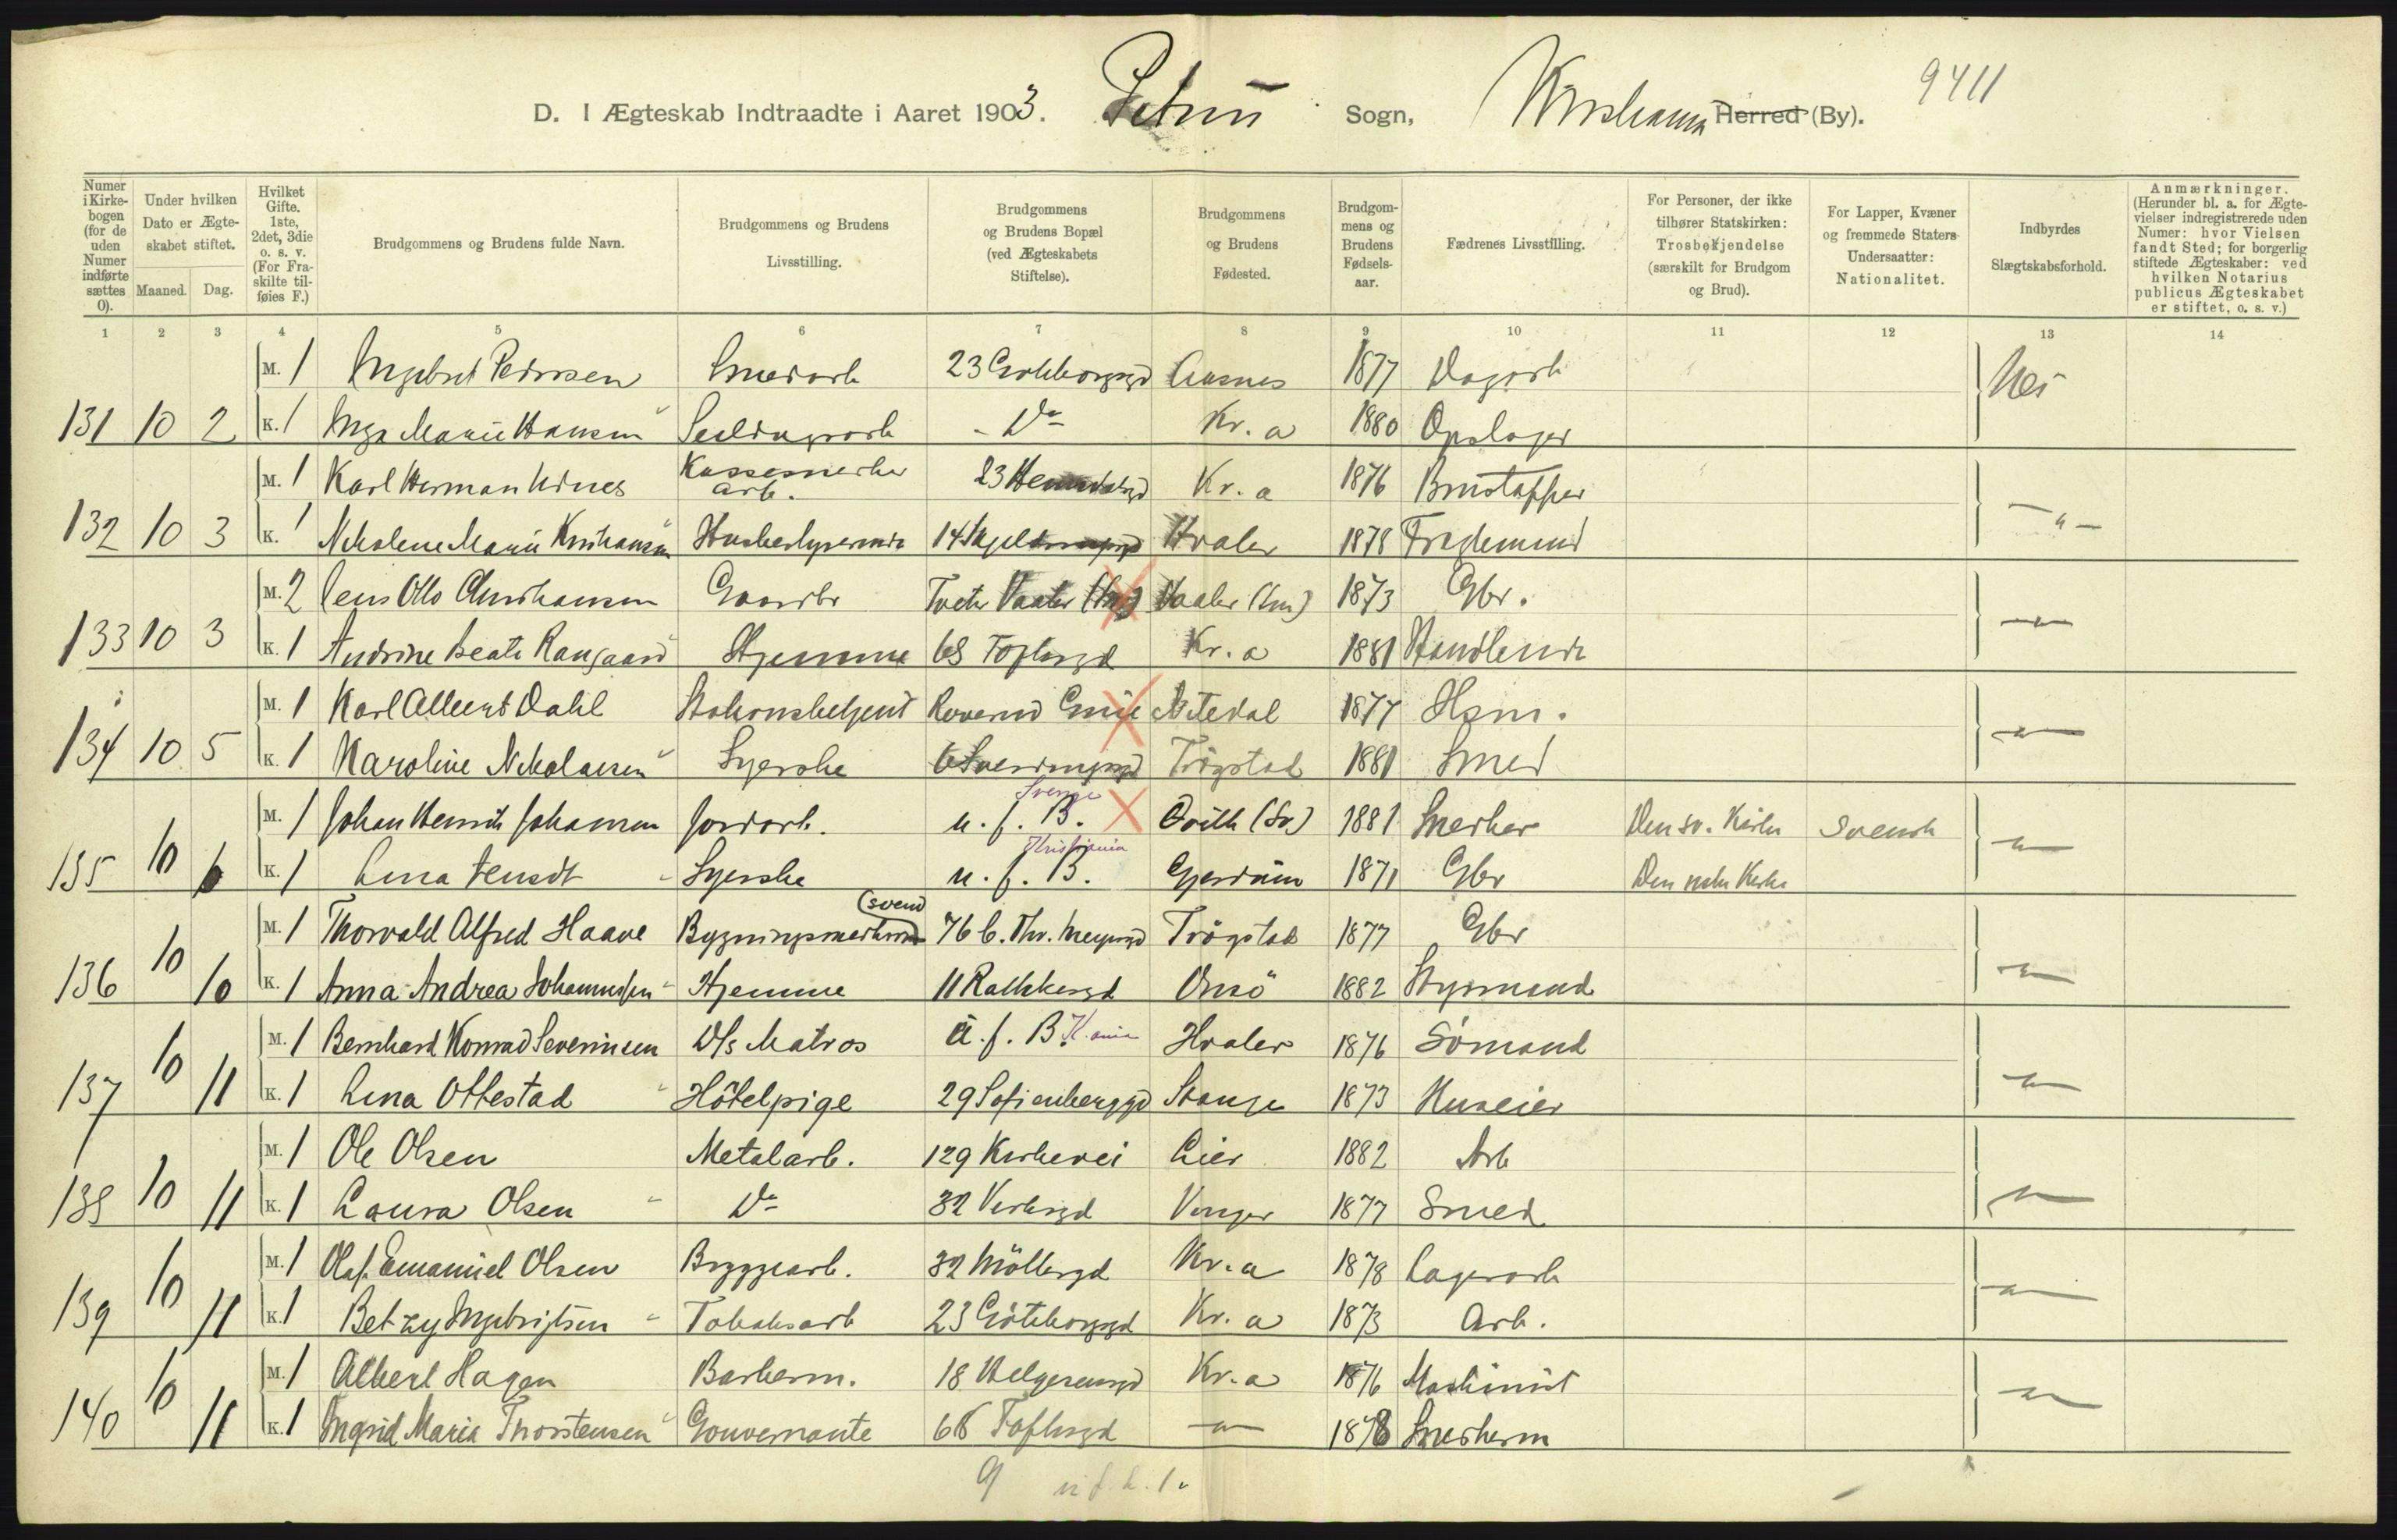 9411
D. I Ægteskab Indtraadte i Aaret 1903. Petrus Sogn, Kristiania Herred (By).
Numer i Kirkebogen (for de uden Numer indførte sættes 0).
Under hvilken Dato er Ægteskabet stiftet.
Maaned. Dag.
Hvilket Gifte. 1ste, 2det, 3die o. s. v. (For Fraskilte tilføies F.)
Brudgommens og Brudens fulde Navn.
Brudgommens og Brudens Livsstilling.
Brudgommens og Brudens Bopæl (ved Ægteskabets Stiftelse).
Brudgommens og Brudens Fødested.
Brudgommens og Brudens Fødselsaar.
Fædrenes Livsstilling.
For Personer, der ikke tilhører Statskirken: Trosbekjendelse (særskilt for Brudgom og Brud).
For Lapper, Kvæner og fremmede Staters Undersaatter: Nationalitet.
Indbyrdes Slægtskabsforhold.
Anmærkninger. (Herunder bl. a. for Ægtevielser indregistrerede uden Numer: hvor Vielsen fandt Sted; for borgerlig stiftede Ægteskaber: ved hvilken Notarius publicus Ægteskabet er stiftet, o. s. v.)
1 2 3 4 5 6 7 8 9 10 11 12 13 14
M. 1 Ingebret Pedersen Smedarb 23 Göteborggd Aasnes 1877 Dagarb Nei
131 10 2 K. 1 Inga Marie Hansen Seildugsarb - Do Kr.a 1880 Opslager
M. 1 Karl Herman Kassesnerker arb. 23 Kr.a 1876 Brustapper
132 10 3 K. 1 Nikoline Marie Kristiansen Husholderske 14 Hvaler 1878 -"-
M. 2 Jens Otto Christiansen Gaardbr Tveter Vaaler (Sm) Vaaler (Sm) 1873 Gbr.
133 10 3 K. 1 Andrine Beate Hjemme 68 Toftesgd Kr.a 1881 Handlende -"-
M. 1 Karl Albert Dahl Stationsbetjent Nitedal 1877 Hsm.
134 10 5 K. 1 Karoline Nikolaisen Syerske 6 Trögstad 1881 Smed -"-
Sverige
M. 1 Johan Henrik Johansen Jordarb. u. f. B. (Sv) 1881 Snerker Den sv. Kirke Svensk
Kristiania
135 10 6 K. 1 Lina Syerske u. f. B. Gjerdrum 1871 Gbr Den norske Kirke -"-
(svend
M. 1 Thorvald Alfred Haave Bygningssnerker 76 b. Thv. Meyersgd Trögstad 1877 Gbr
136 10 10 K. 1 Anna Andrea Johannessen Hjemme 11 Rathkesgd Onsö 1882 Styrmand -"-
M. 1 Bernhard Konrad Severinsen D/s Matros u. f. B. K.ania Hvaler 1876 Sömand
137 10 11 K. 1 Lina Ottestad Hötelpige 29 Sofienberggd Stange 1873 Huseier -"-
M. 1 Ole Olsen Metalarb. 129 Kirkevei Lier 1882 Arb
138 10 11 K. 1 Laura Olsen Do 32 Verksgd Vinger 1877 Smed -"-
M. 1 Olaf Emanuel Olsen Bryggearb. 32 Möllergd Kr.a 1878 Lagerarb
139 10 11 K. 1 Betzy Ingebrigtsen Tobaksarb 23 Göteborggd Kr.a 1873 Arb. -"-
M. 1 Albert Hagen Barberm. 18 Helgesensgd Kr.a 1876 Maskinist
140 10 11 K. 1 Ingrid Maria Thorstensen Gouvernante 68 Toftesgd -"- 1878 Snerkerm -"-
9